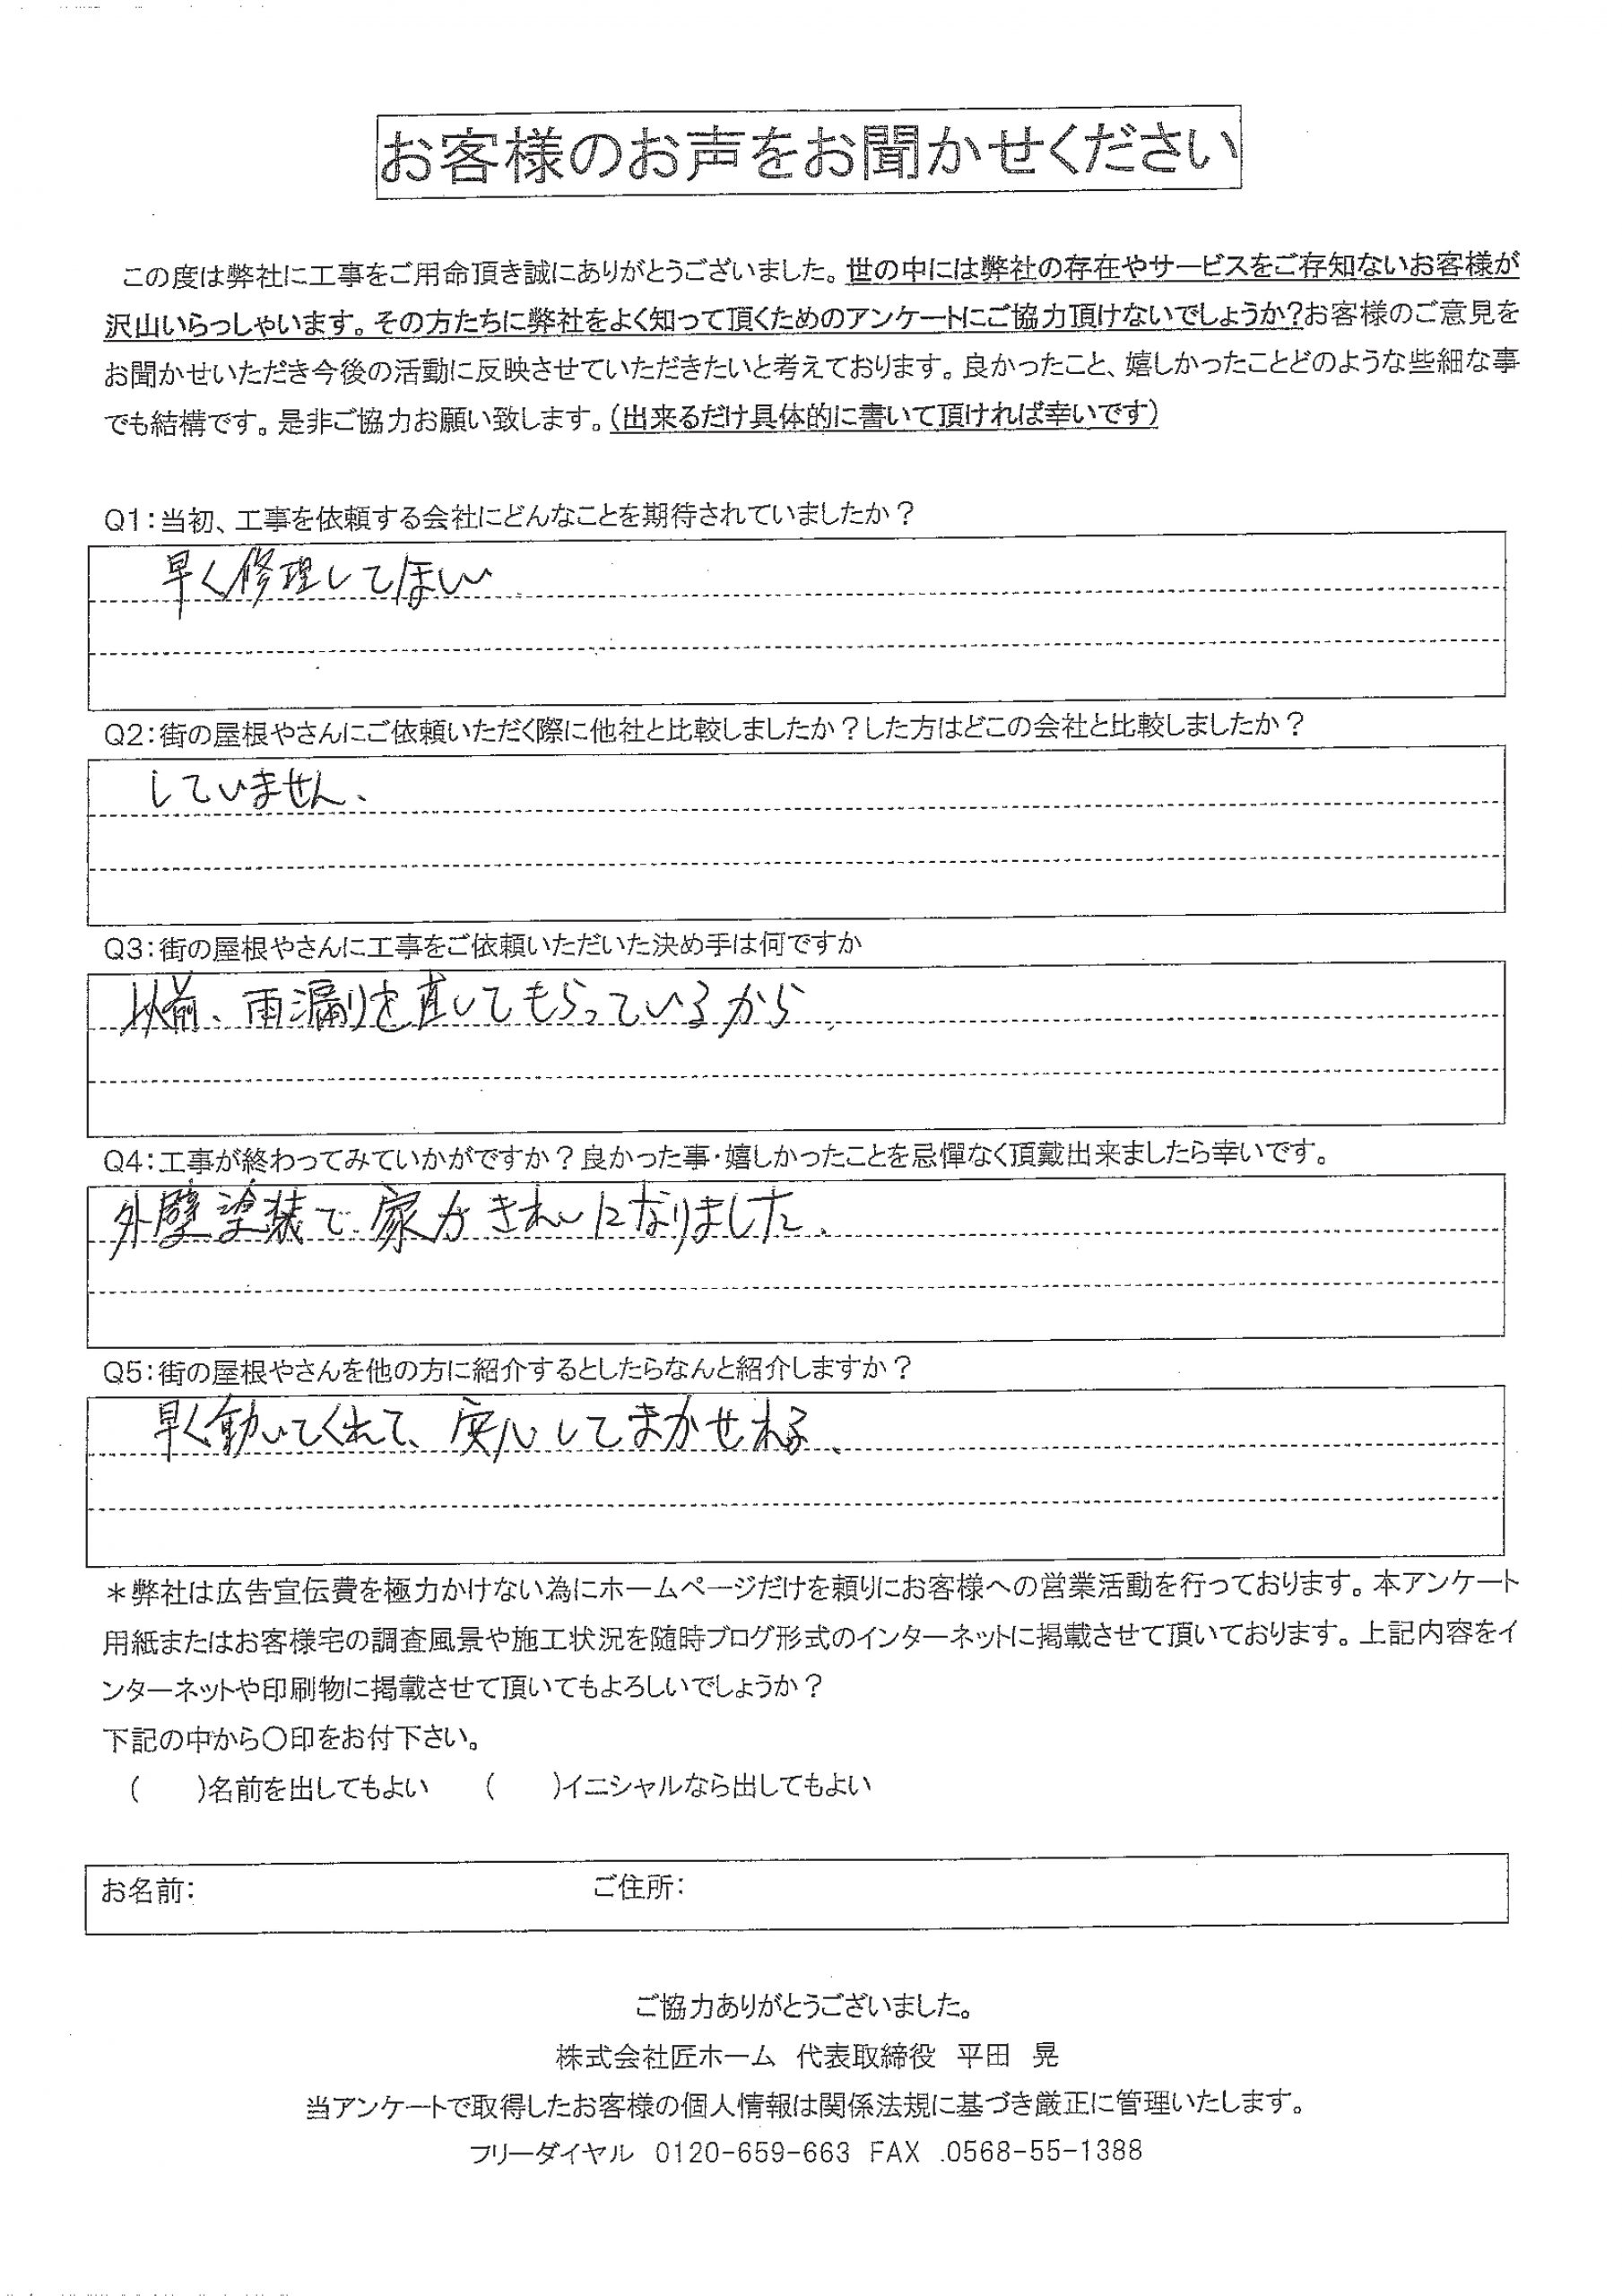 お客様のお声をお聞かせください
この度は弊社に工事をご用命頂き誠にありがとうございました。世の中には弊社の存在やサービスをご存知ないお客様が
沢山いらっしゃいます。その方たちに弊社をよく知って頂くためのアンケートにご協力頂けないでしょうか?お客様のご意見を
お聞かせいただき今後の活動に反映させていただきたいと考えております。良かったこと、嬉しかったことどのような些細な事
でも結構です。是非ご協力お願い致します。(出来るだけ具体的に書いて頂ければ幸いです)
Q1:当初、工事を依頼する会社にどんなことを期待されていましたか?
早く修理してほしい
Q2:街の屋根やさんにご依頼いただく際に他社と比較しましたか?した方はどこの会社と比較しましたか?
していません、
Q3:街の屋根やさんに工事をご依頼いただいた決め手は何ですか
以前、雨漏りを直してもらっているから
Q4:工事が終わってみていかがですか?良かった事・嬉しかったことを忌憚なく頂戴出来ましたら幸いです。
外壁塗装で家がきれいになりました、
Q5:街の屋根やさんを他の方に紹介するとしたらなんと紹介しますか?
早く動いてくれて、安心してまかせれる、
*弊社は広告宣伝費を極力かけない為にホームページだけを頼りにお客様への営業活動を行っております。本アンケート
用紙またはお客様宅の調査風景や施工状況を随時ブログ形式のインターネットに掲載させて頂いております。上記内容をイ
ンターネットや印刷物に掲載させて頂いてもよろしいでしょうか?
下記の中から〇印をお付下さい。
(　　)名前を出してもよい　　(　　)イニシャルなら出してもよい
お名前:　ご住所:
ご協力ありがとうございました。
株式会社匠ホーム　代表取締役　平田　晃
当アンケートで取得したお客様の個人情報は関係法規に基づき厳正に管理いたします。
フリーダイヤル　0120-659-663 FAX .0568-55-1388